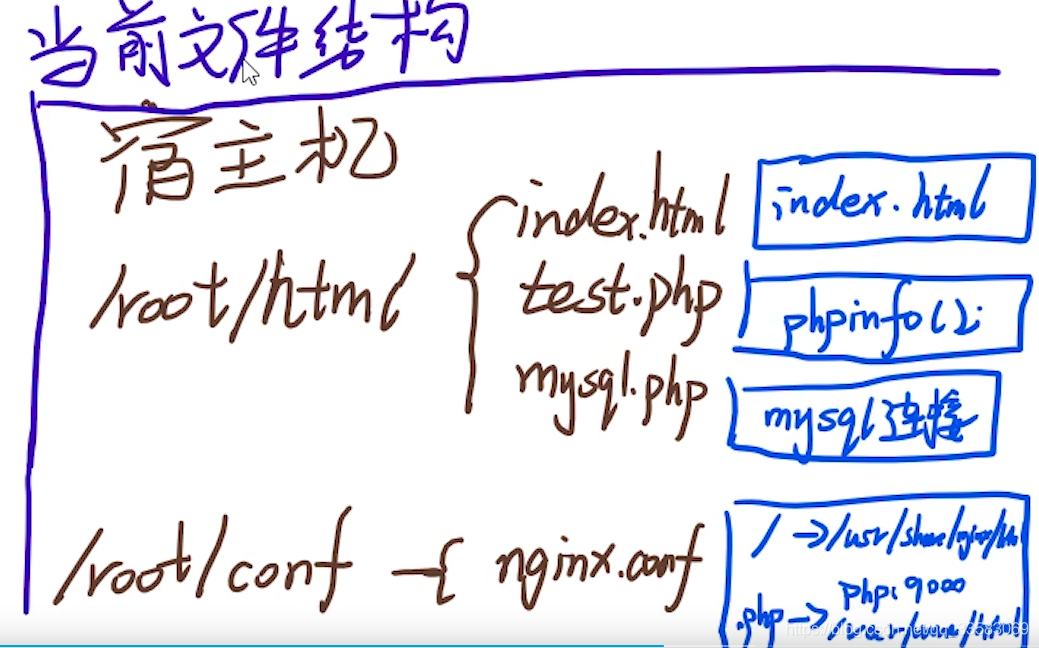 当前文件结构
宿主机
/root/html
index.html
index.html
test.php
phpinfo();
mysql.php
mysql连接
/root/conf
nginx.conf
/ → /usr/share/nginx/html
php:9000
.php →